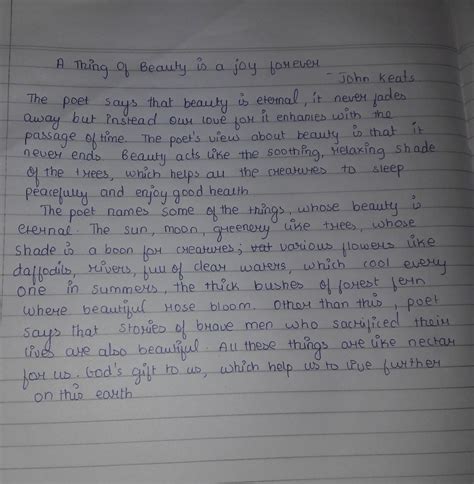 A Thing Of Beauty is a joy forever
- John Keats
The poet says that beauty is eternal, it never fades
away but instead our love for it enhances with the
passage of time. The poet's view about beauty is that it
never ends. Beauty acts like the soothing, relaxing shade
of the trees, which helps all the creatures to sleep
peacefully and enjoy good health
The poet names some of the things, whose beauty is
eternal. The sun, moon, greenery like trees, whose
shade is a boon for creatures; various flowers like
daffodils, rivers, full of clear waters, which cool every
one in summers, the thick bushes of forest fern
where beautiful rose bloom. Other than this, poet
says that stories of brave men who sacrificed their
lives are also beautiful. All these things are like nectar
for us. God's gift to us, which help us to live further
on this earth